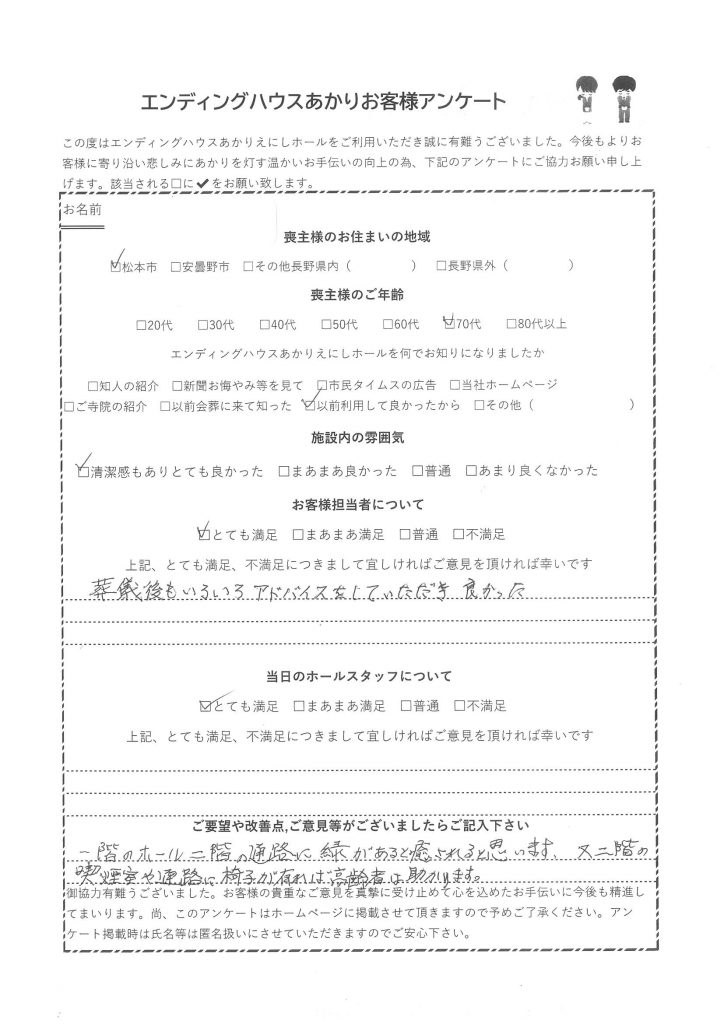 エンディングハウスあかりお客様アンケート
この度はエンディングハウスあかりえにしホールをご利用いただき誠に有難うございました。今後もよりお
客様に寄り沿い悲しみにあかりを灯す温かいお手伝いの向上の為、下記のアンケートにご協力お願い申し上
げます。該当される□に✔をお願い致します。
お名前
喪主様のお住まいの地域
☑松本市 □安曇野市 □その他長野県内（ ） □長野県外（ ）
喪主様のご年齢
□20代 □30代 □40代 □50代 □60代 ☑70代 □80代以上
エンディングハウスあかりえにしホールを何でお知りになりましたか
□知人の紹介 □新聞お悔やみ等を見て □市民タイムスの広告 □当社ホームページ
□ご寺院の紹介 □以前会葬に来て知った ☑以前利用して良かったから □その他（ ）
施設内の雰囲気
☑清潔感もありとても良かった □まあまあ良かった □普通 □あまり良くなかった
お客様担当者について
☑とても満足 □まあまあ満足 □普通 □不満足
上記、とても満足、不満足につきまして宜しければご意見を頂ければ幸いです
葬儀後もいろいろアドバイスをしていただき良かった
当日のホールスタッフについて
☑とても満足 □まあまあ満足 □普通 □不満足
上記、とても満足、不満足につきまして宜しければご意見を頂ければ幸いです
ご要望や改善点,ご意見等がございましたらご記入下さい
一階のホール二階の通路に緑があると癒されると思います、又二階の
喫煙室や通路に椅子が有れば高齢者は助かります。
御協力有難うございました。お客様の貴重なご意見を真摯に受け止めて心を込めたお手伝いに今後も精進し
てまいります。尚、このアンケートはホームページに掲載させて頂きますので予めご了承ください。アン
ケート掲載時は氏名等は匿名扱いにさせていただきますのでご安心下さい。